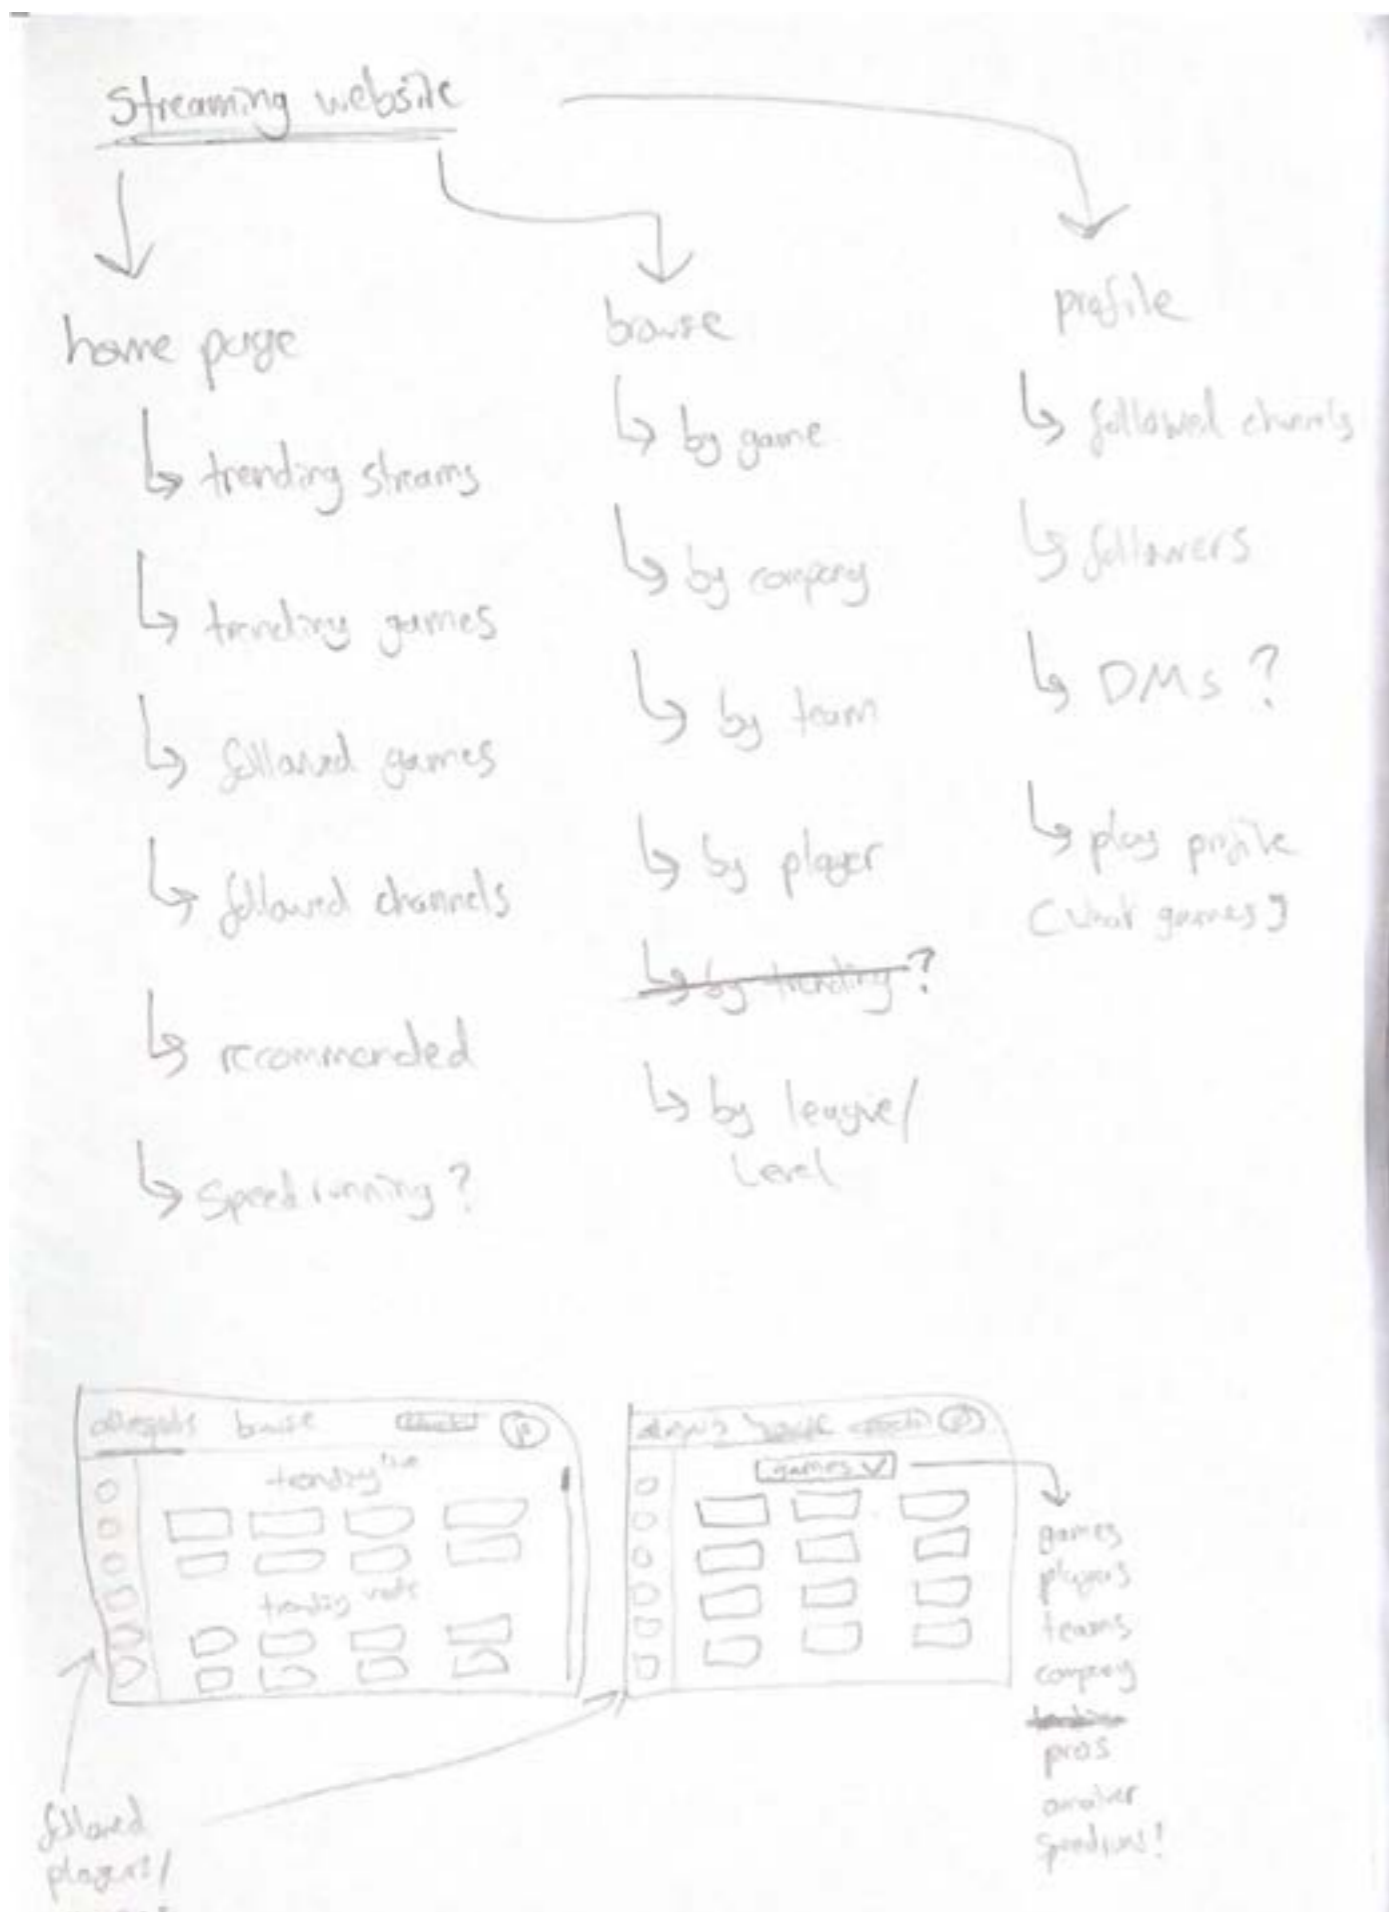 Streaming website
home page
trending streams
trending games
followed games
followed channels
recommended
Speed running?
browse
by game
by company
by team
by player
by trending?
by league/
Level
profile
followed
followers
DMs?
play profile
(what games)
browse
trending live
trending vods
browse
games
games
players
teams
company
pros
followed
players/